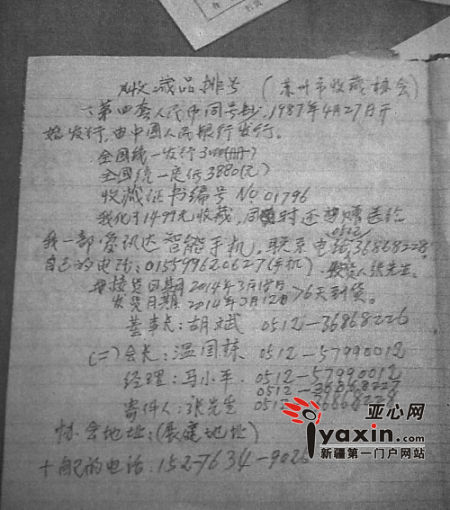 收藏品排号 (苏州市收藏协会)
第四套人民币同号钞，1987年4月27日开
始发行，由中国人民银行发行。
全国统一发行3000(册)
全国统一定价3880(元)
收藏证书编号 No 01796
我化了1499元收藏，同时还赠送给
我一部 智能手机。联系电话 0512 36868228
自己的电话：01559962.0627(手机) 张先生。
接货日期 2014年3月18号
发货日期 2014年3月12日 >6天到货。
董事长：胡斌 0512-36868226
(二)会长：温国栋 0512-57990012
经理：马小平 0512-57990012
0512-36868227
寄件人：张先生 0512-36868228
协会地址：(展建地址)
的电话：152-7634-902
亚心网
iyaxin.com
新疆第一门户网站